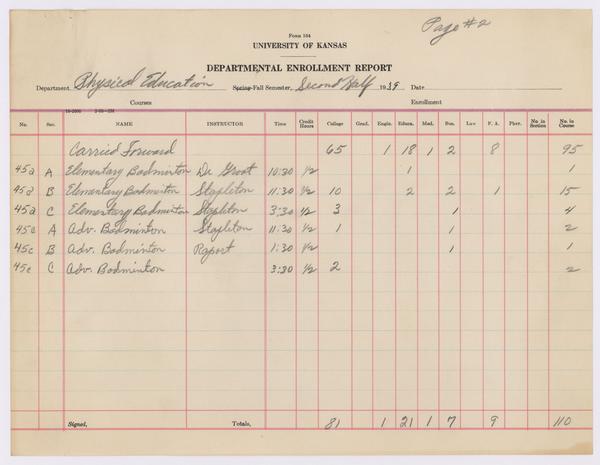 Page #2
Form 104
UNIVERSITY OF KANSAS
DEPARTMENTAL ENROLLMENT REPORT
Department, Physical Education Spring-Fall Semester, Second Half 1939 Date
Courses Enrollment
No. Sec. NAME INSTRUCTOR Time Credit Hours College Grad. Engin. Educa. Med. Bus. Law F. A. Phar. No. in Section No. in Course
Carried Forward 65 1 18 1 2 8 95
45a A Elementary Badminton Du Groot 10:30 1/2 1 1
45a B Elementary Badminton Stapleton 11:30 1/2 10 2 2 1 15
45a C Elementary Badminton Stapleton 3:30 1/2 3 1 4
45c A Adv. Badminton Stapleton 11:30 1/2 1 1 2
45c B Adv. Badminton Raport 1:30 1/2 1 1
45c C Adv. Badminton 3:30 1/2 2 2
Signed, Totals, 81 1 21 1 7 9 110